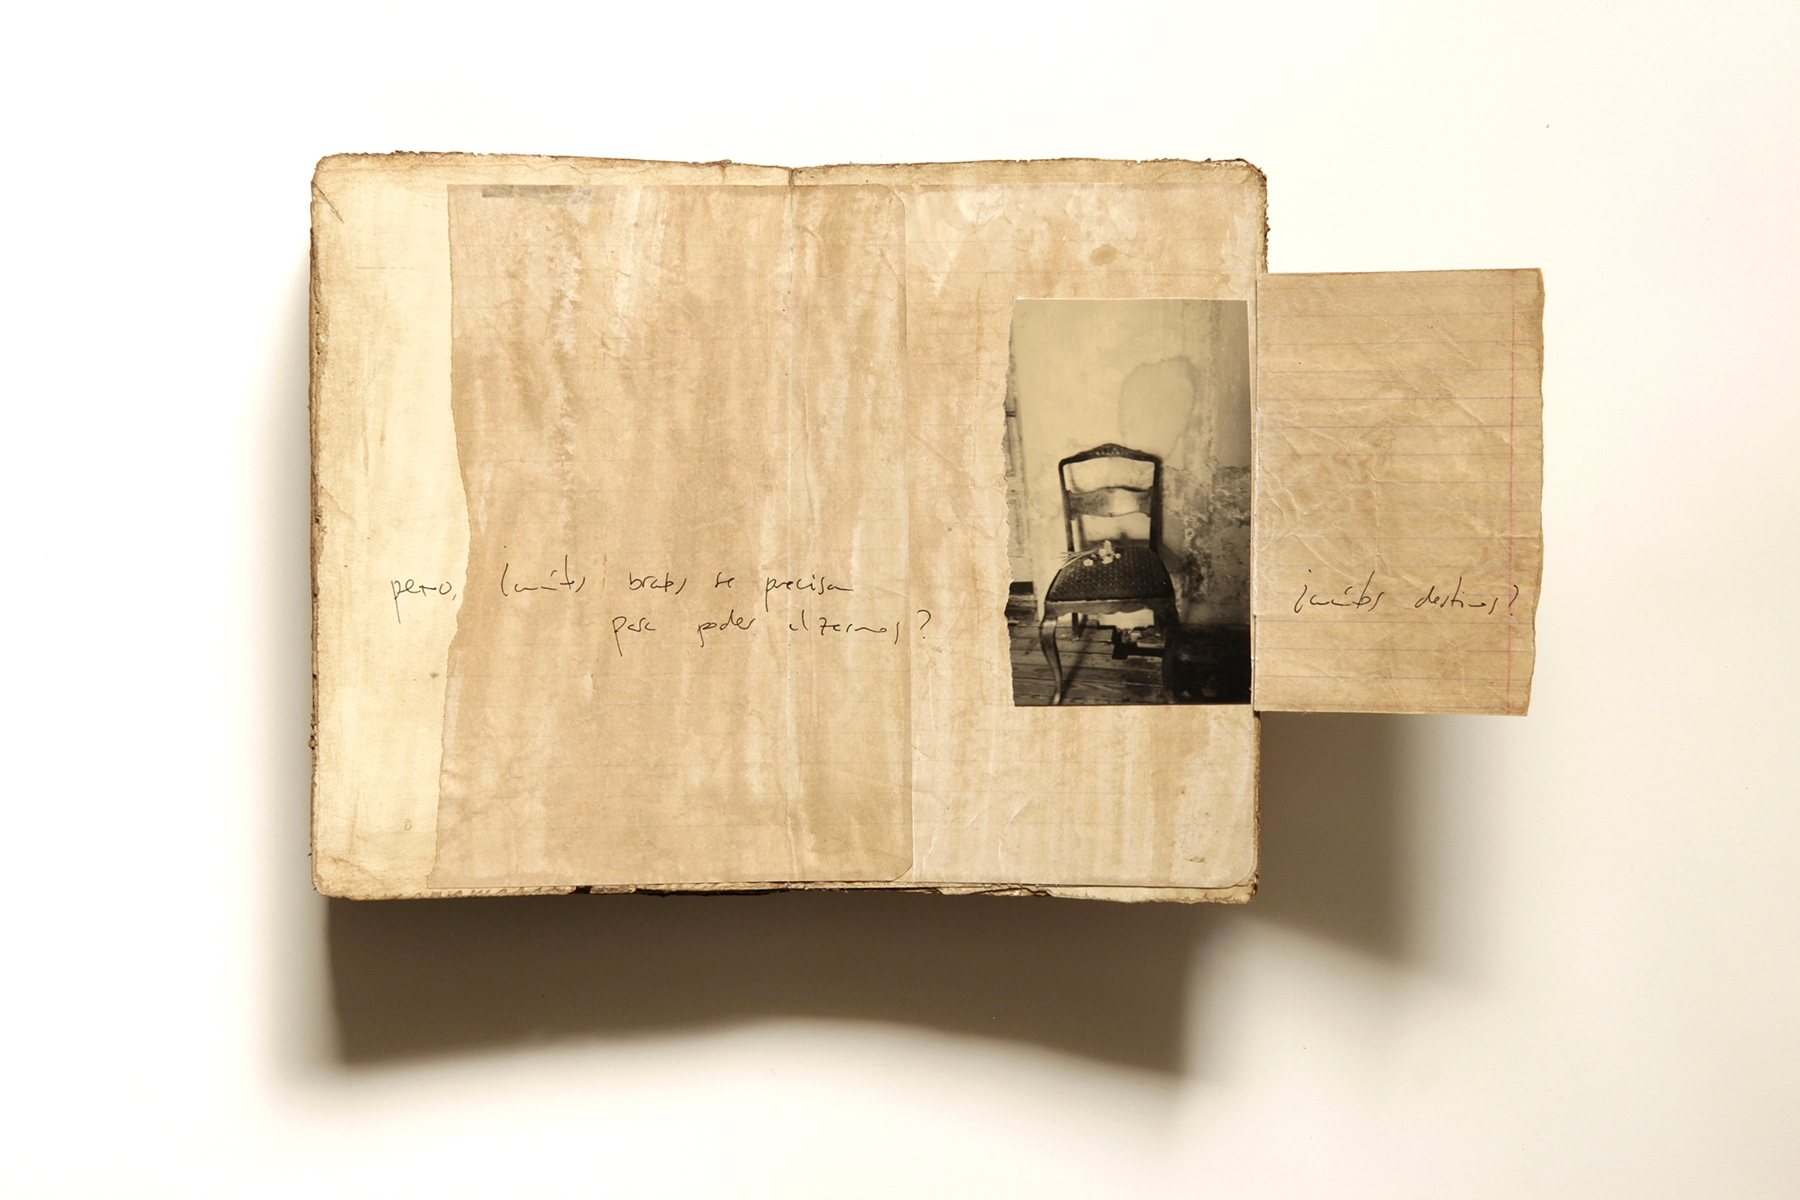 pero, ¿cuántos brazos se precisan
para poder alzarnos?
¿cuántos destinos?